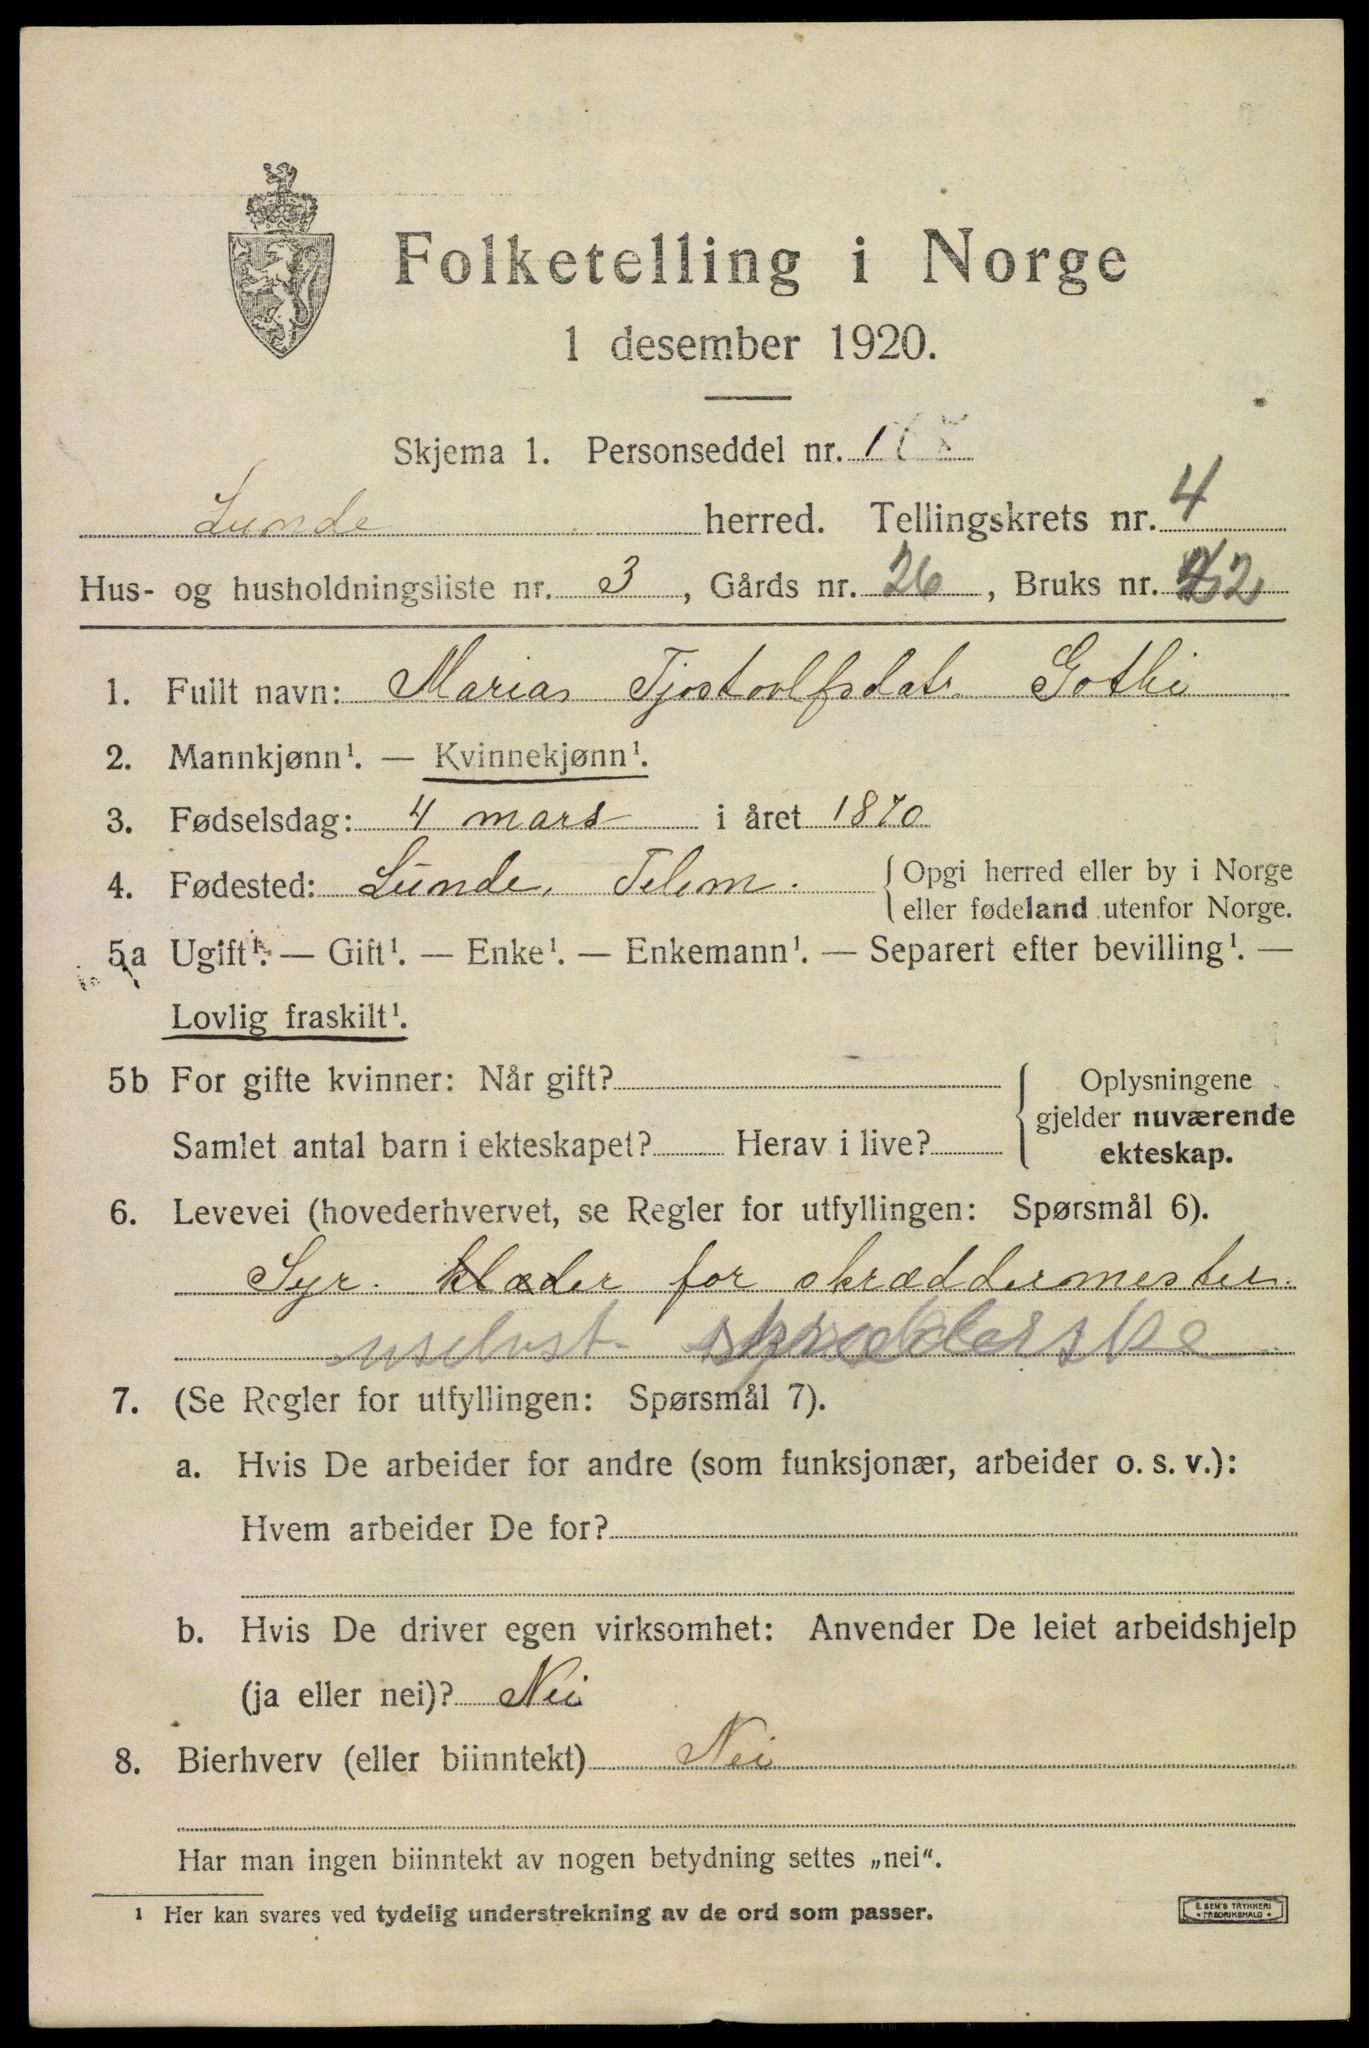 Folketelling i Norge
1 desember 1920.
Skjema 1. Personseddel nr. 1
Lunde herred. Tellingskrets nr. 4
Hus- og husholdningsliste nr. 3, Gårds nr. 26, Bruks nr. 2
1. Fullt navn: Maria Tjostolfsdatr. Gothi
2. Mannkjønn¹. — Kvinnekjønn¹.
3. Fødselsdag: 4 mars i året 1870
4. Fødested: Lunde, Telem. { Opgi herred eller by i Norge
eller fødeland utenfor Norge.
5a Ugift¹. — Gift¹. — Enke¹. — Enkemann¹. — Separert efter bevilling¹. —
Lovlig fraskilt¹.
5b For gifte kvinner: Når gift? { Oplysningene
gjelder nuværende
Samlet antal barn i ekteskapet? Herav i live? ekteskap.
6. Levevei (hovederhvervet, se Regler for utfyllingen: Spørsmål 6).
Syr. klæder for skræddermester.
uselvst. skrædderske
7. (Se Regler for utfyllingen: Spørsmål 7).
a. Hvis De arbeider for andre (som funksjonær, arbeider o. s. v.):
Hvem arbeider De for?
b. Hvis De driver egen virksomhet: Anvender De leiet arbeidshjelp
(ja eller nei)? Nei
8. Bierhverv (eller biinntekt) Nei
Har man ingen biinntekt av nogen betydning settes „nei“.
1 Her kan svares ved tydelig understrekning av de ord som passer.
E. SEM'S TRYKKERI
* FREDRIKSHALD *